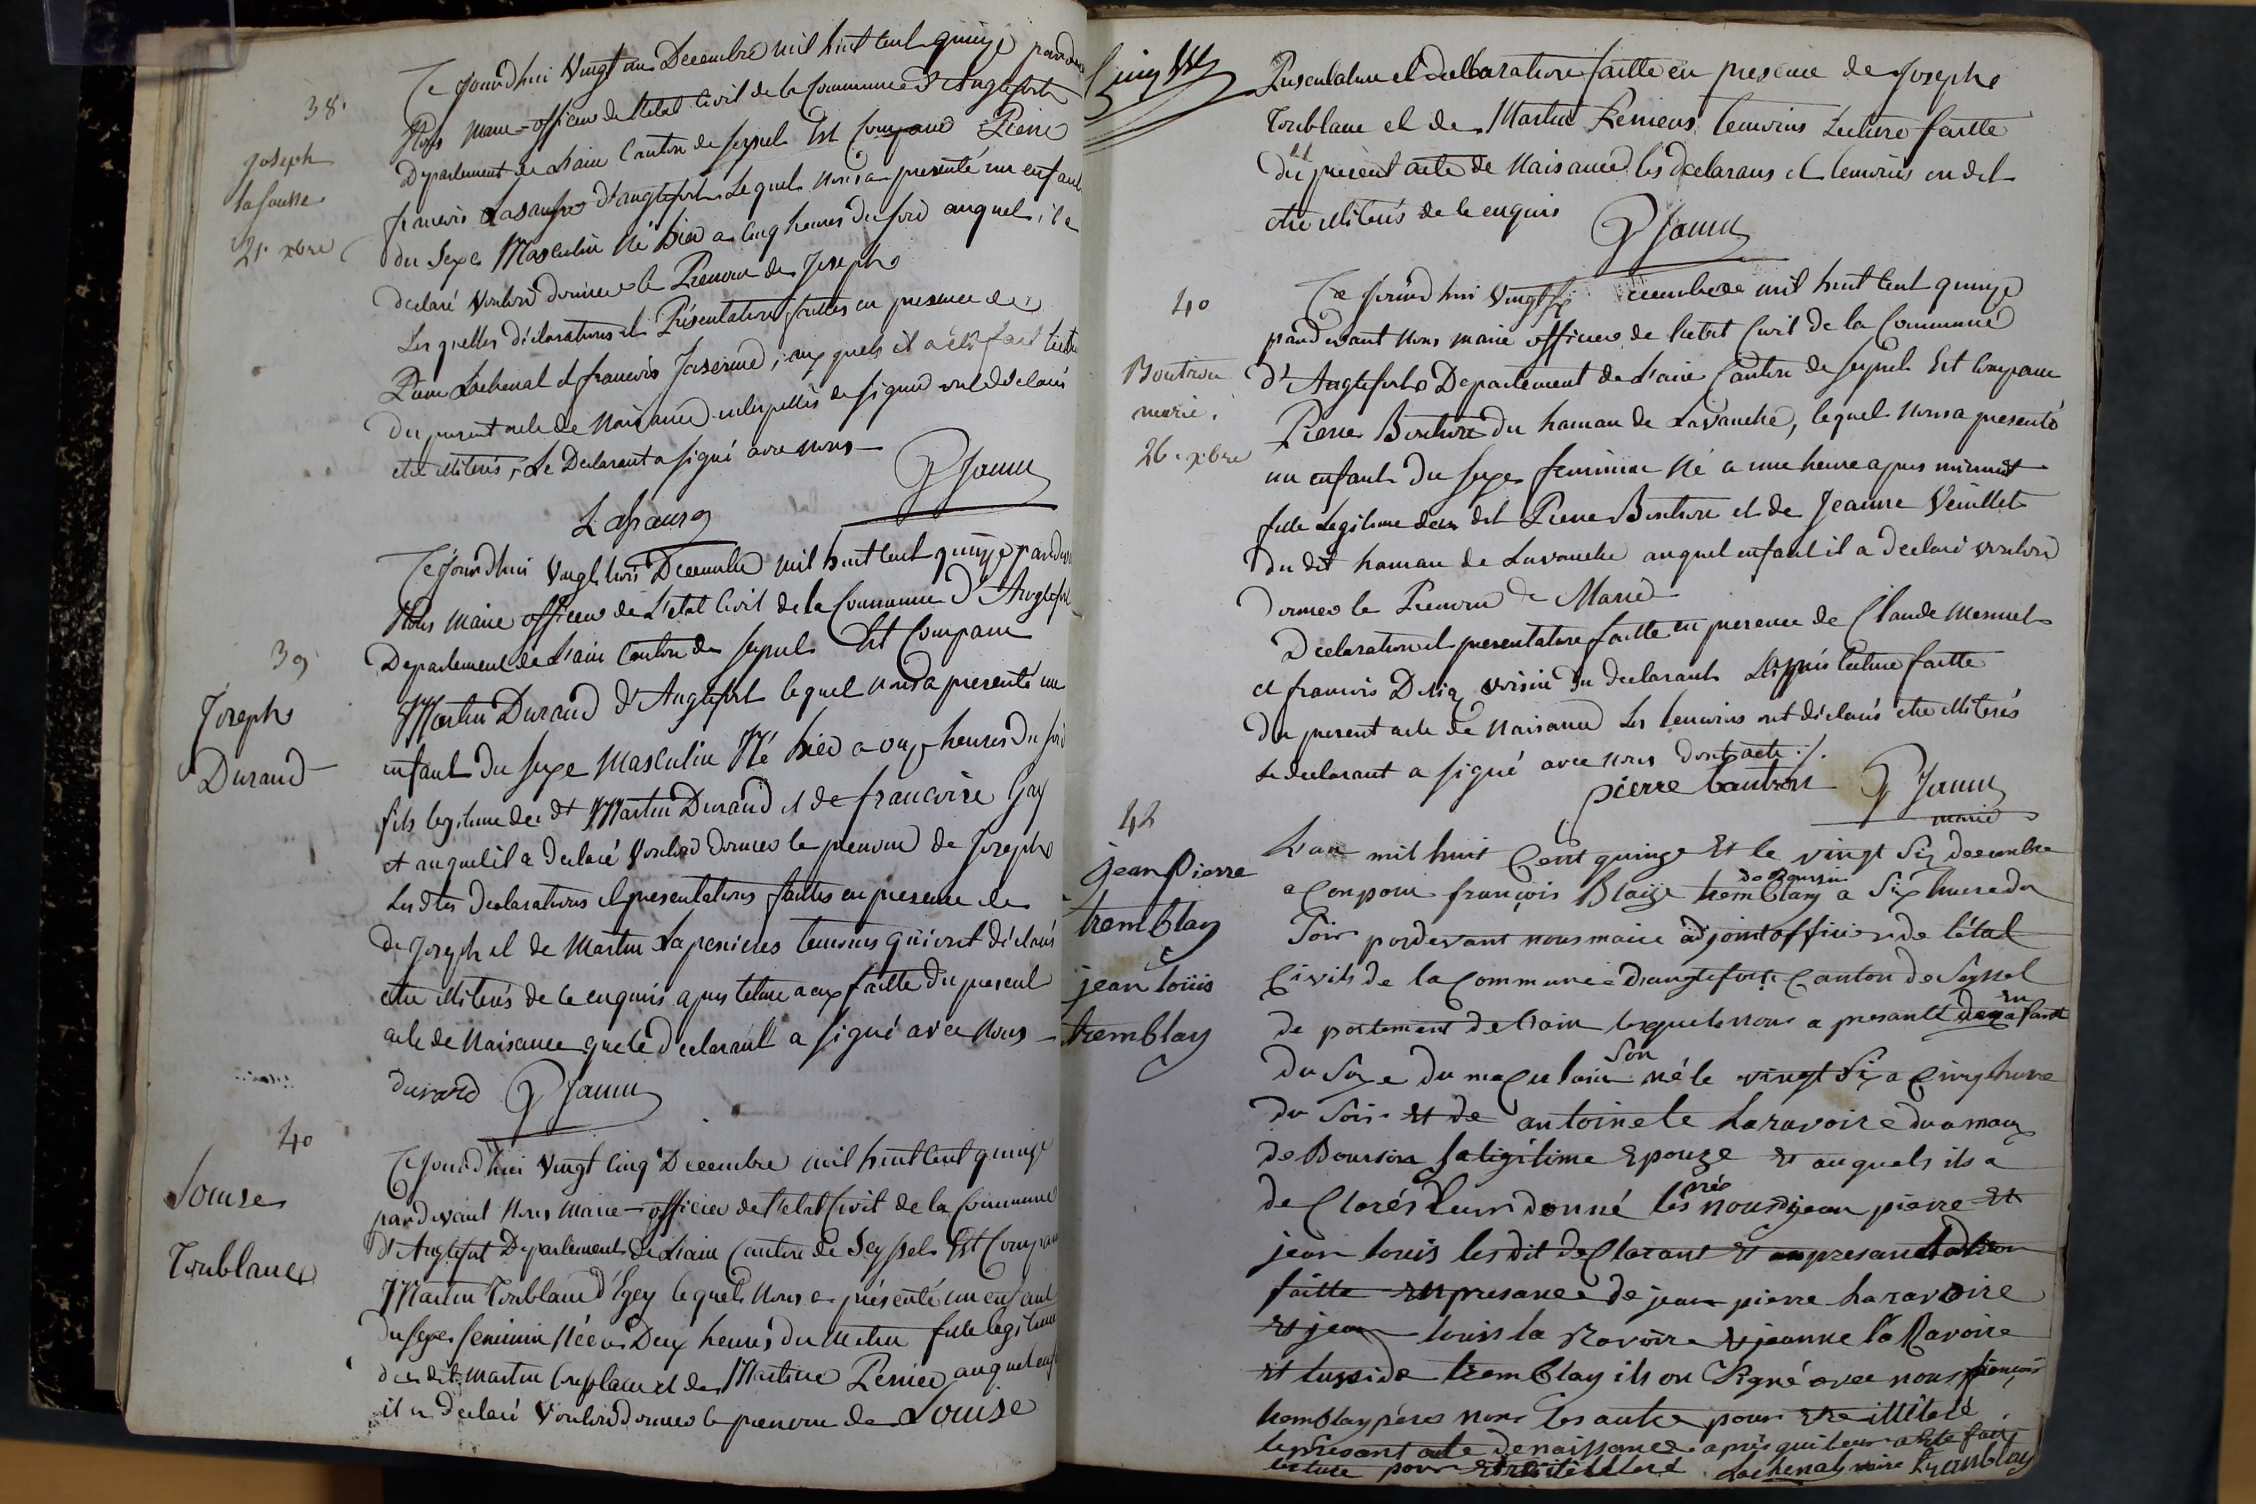 38.
Joseph
la fausse
21. xbre
Ce Jourdhui Vingt un Decembre mil huit Cent quinze pardevant
Nous Maire-officier de l'Etat Civil de la Commune d'Anglefort
Departement de L'ain Canton de Seyssel Est Comparu Pierre
francois d'anglefort Lequel nous a presenté un enfant
du Sexe Masculin Né hier a cinq heures du soir auquel il a
declaré Vouloir donner le Prenom de Joseph
Les quelles déclarations et Présentation faittes en presence de
Lachenal et francois aux quels il a été fait lecture
du present acte de Naissance interpellés de signer ont déclarés
etre illiterés, Le Declarant a signé avec nous
39
Joseph
Durand
Ce Jourdhui Vingt trois Decembre mil huit Cent quinze pardevant
Nous Maire officier de L'etat Civil de la Commune D'Anglefort
Departement de L'ain Canton de Seyssel Est Comparu
Martin Durand d'Anglefort lequel nous a presenté un
enfant du sexe Masculin Né hier a onze heures du soir
fils legitime du dt Martin Durand et de francoise Gay
et auquel il a declaré Vouloir donner le prenom de Joseph
Lesdtes Declarations et presentations faittes en presence de
de Joseph et de Martin Laperieres temoins qui ont déclarés
etre illiterés de ce enquis apres lecture a eux faitte du present
acte de Naissance que le declarant a signé avec Nous
durand
40
Louise
Toublanc
Ce Jourdhui Vingt Cinq Decembre mil huit Cent quinze
pardevant Nous Maire-officier de l'etat Civil de la Commune
d'Anglefort Departement de L'ain Canton de Seyssel Est Comparu
Martin Toublanc d'Egey lequel Nous a présenté un enfant
du Sexe feminin Née a Deux heures du matin fille legitime
du dit martin et de Martine Renier auquel enft
il a declaré Vouloir donner le prenom de Louise
Presentation et declaration faitte en presence de Joseph
Toublanc et de Martin Reniers temoins Lecture faitte
du présent acte de Naissance les declarans et temoins on dit
etre illiterés de ce enquis
40
Boutron
marie.
26. xbre
Ce Jourd'hui Vingt six decembre mil huit Cent quinze
pardevant nous maire officier de l'etat Civil de la Commune
d'Anglefort Departement de L'ain Canton de Seyssel Est Comparu
Pierre Boutron du hamau de Lavanche, lequel nous a presenté
un enfant du sexe feminin Né a une heure apres minuit
fille Legitime du dit Pierre Boutron et de Jeanne Veuillet
du dit hamau de Lavanche auquel enfant il a declaré vouloir
donner le Prenom de Marie
Declaration et presentation faitte en presence de Claude Mermet
et francois voisin du declarant Après lecture faitte
du present acte de Naissance Les temoins ont déclarés etre illiterés
Le declarant a signé avec nous dont acte ./.
pierre boutron
maire
42
jean Pierre
tremblay
E
jean louis
tremblay
L'an mil huit Cent quinze Et le vingt six decembre
a Conparu françois Blaize tremblay de Boursin a six hure du
Soir pardevant nous maire adjoint officier de l'état
Civils de la Commune d'anglefort Canton de Seyssel
de partement de l'ain lequels nous a presanté deux enfant
du Sexe du maculain Son né le vingt six a Cinq hure
du Soir Et de antoinete laravoire du amaux
de Boursin la légitime Epouze Et auquels il a
de Clarés leur donné les prénons jean pierre Et
jean louis lesdit de Clarant Et presantation
faitte En presance de jean pierre laravoire
Et jean louis la Ravoire Et jeanne la Ravoire
Et tremblay ils on Signé avec nous françois
tremblay pères nons les autre pour Etre illiteré
le Présant acte de naissance apres qui leur a Eté fait
lecture pour Etre illiteré Lachenal maire tremblay